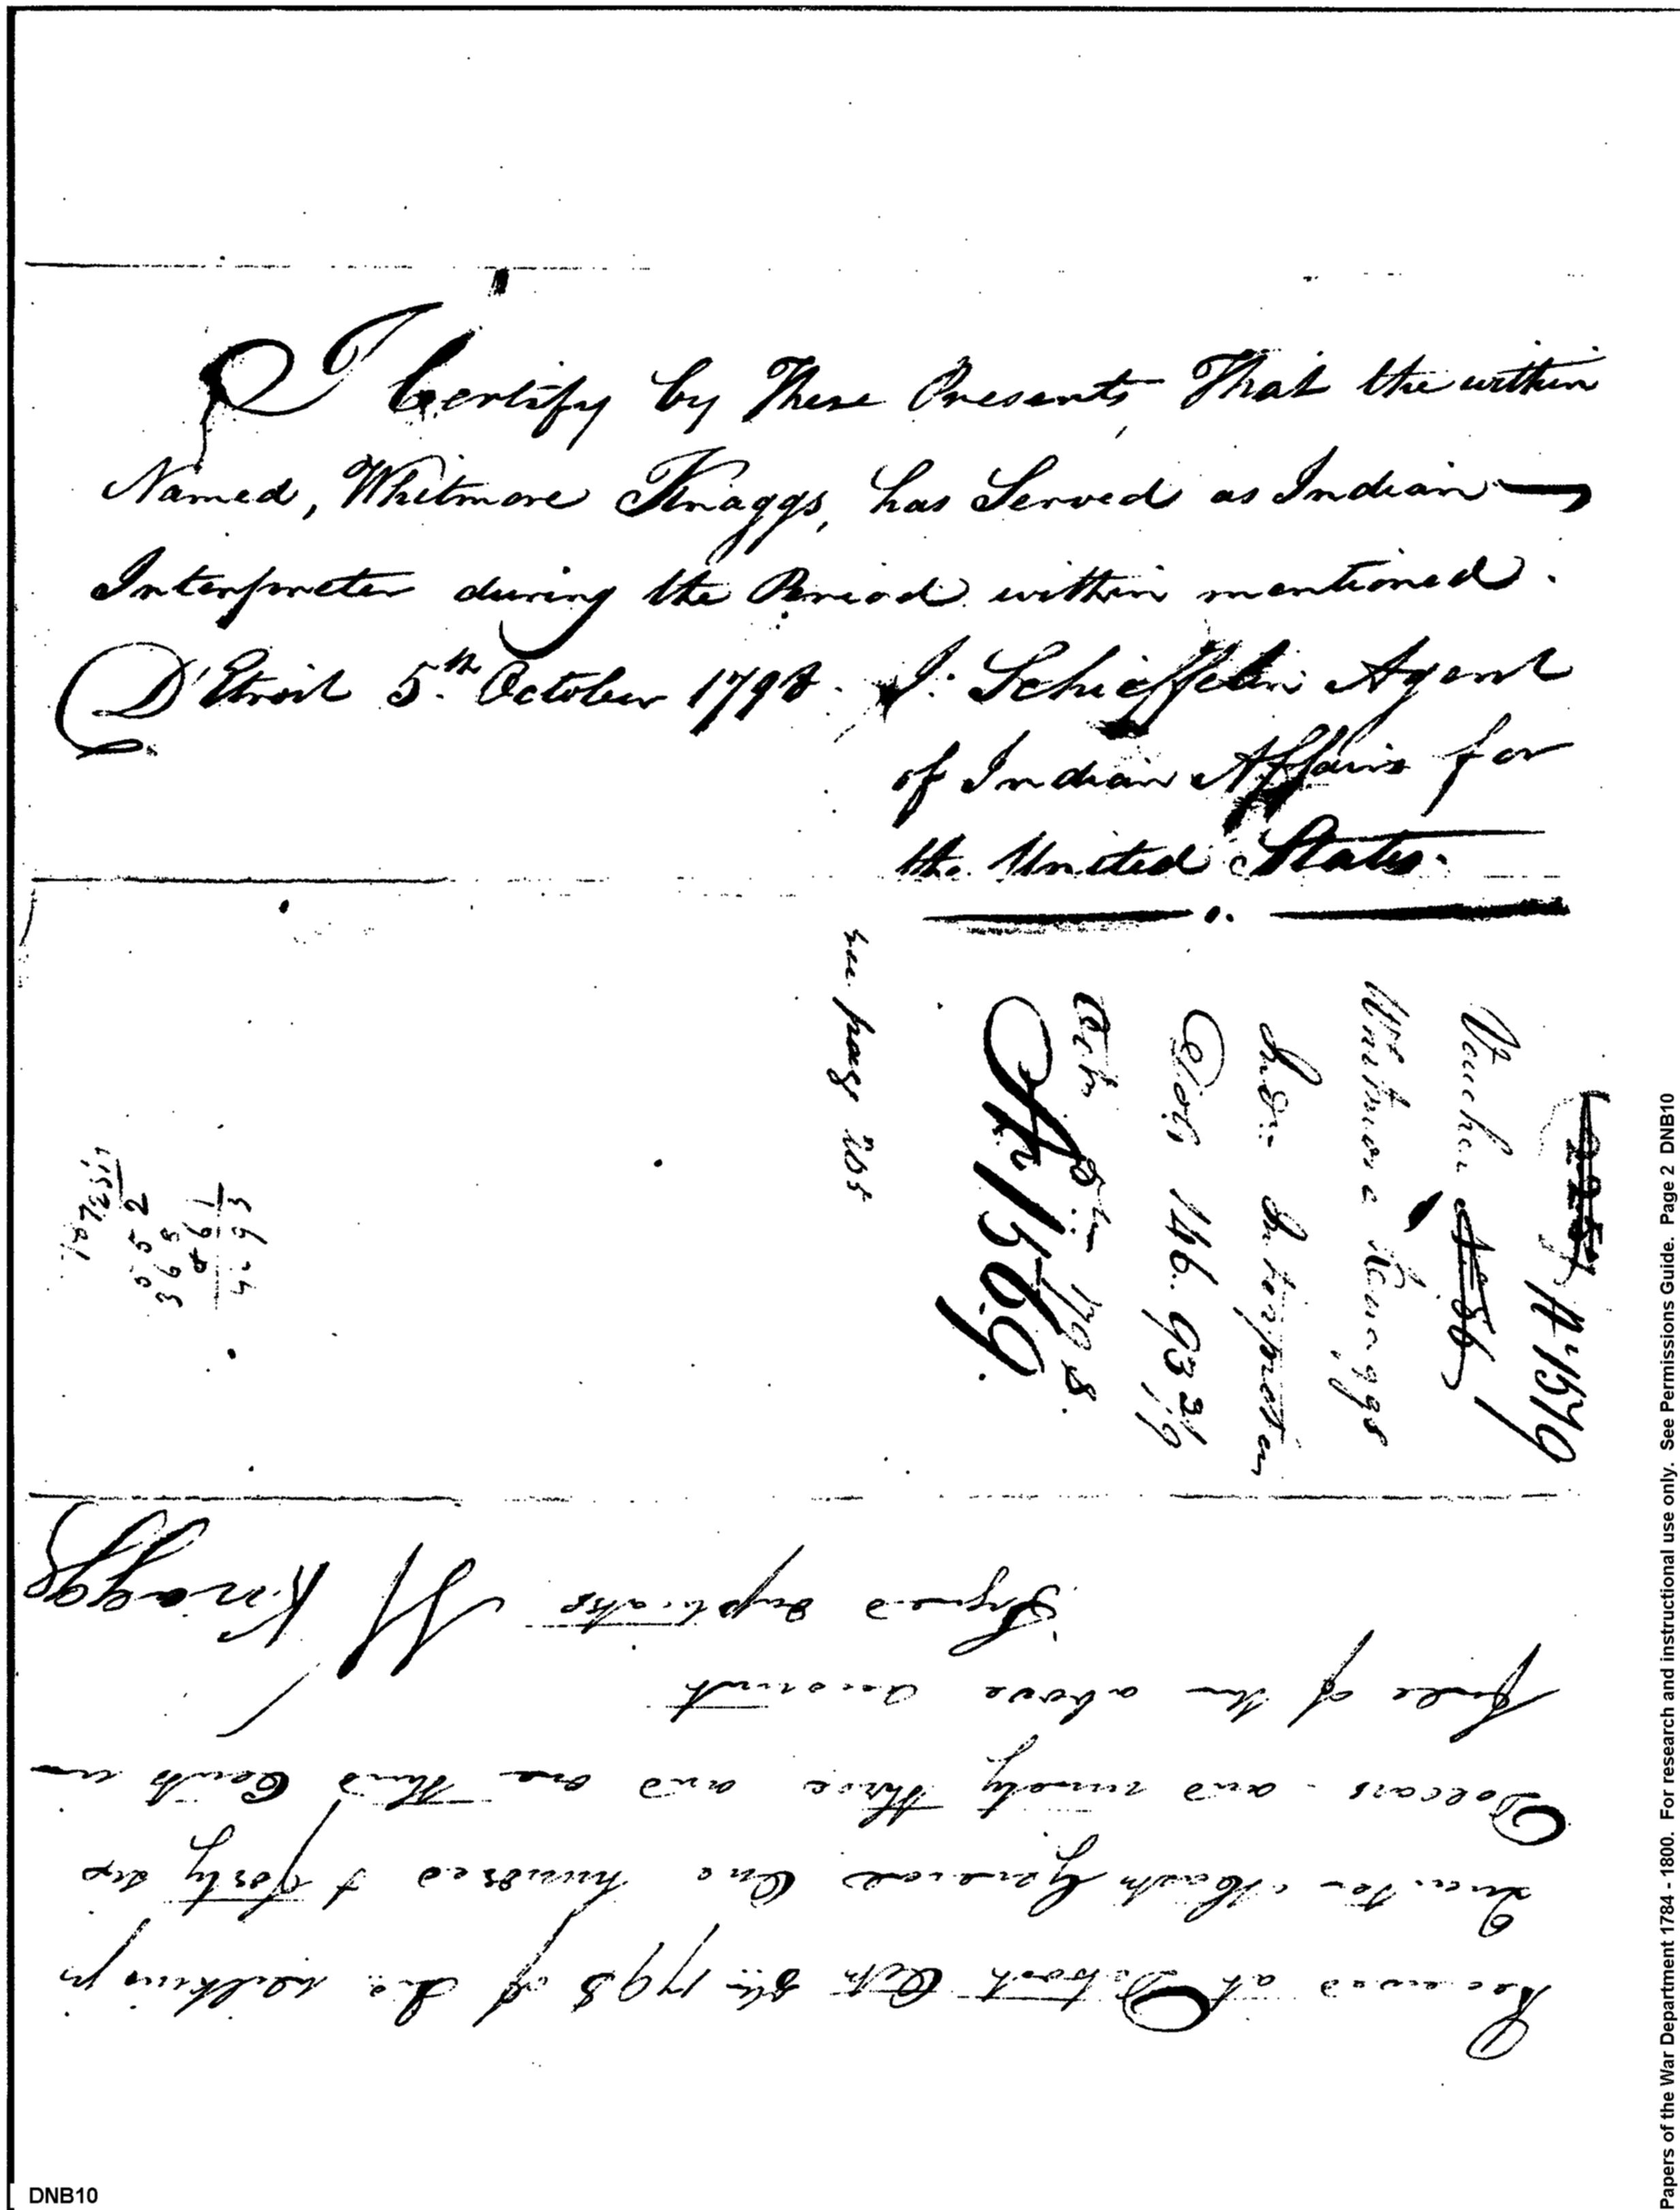 I Certify by These Presents, That the within
Named, Whitmore Knaggs, has Served as Indian
Interpreter during the Period within mentioned.
D'Etroit 5.th October 1798. J: Schieffelin Agent
of Indian Affairs for
the United States.
2251 #1579
Voucher No 56
Whitmore Knaggs
Indn. Interpreter
Dols 146. 93 3/9
Octr 5th 1798.
No 1569.
see page 205
Received at Detroit Octr 5th 1798 of
Quarter Master General One hundred & forty six
Dollars and ninety three and one third Cents in
full of the above account
Signed duplicates W Knaggs
DNB10
Papers of the War Department 1784 - 1800. For research and instructional use only. See Permissions Guide. Page 2 DNB10